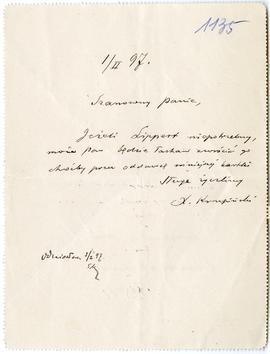 1135
1/II 97.
Szanowny panie,
Jeżeli Lippert niepotrzebny,
może pan będzie łaskaw zwrócić go
choćby przez oddawcę niniejszej kartki
Sługa życzliwy
2/2 97